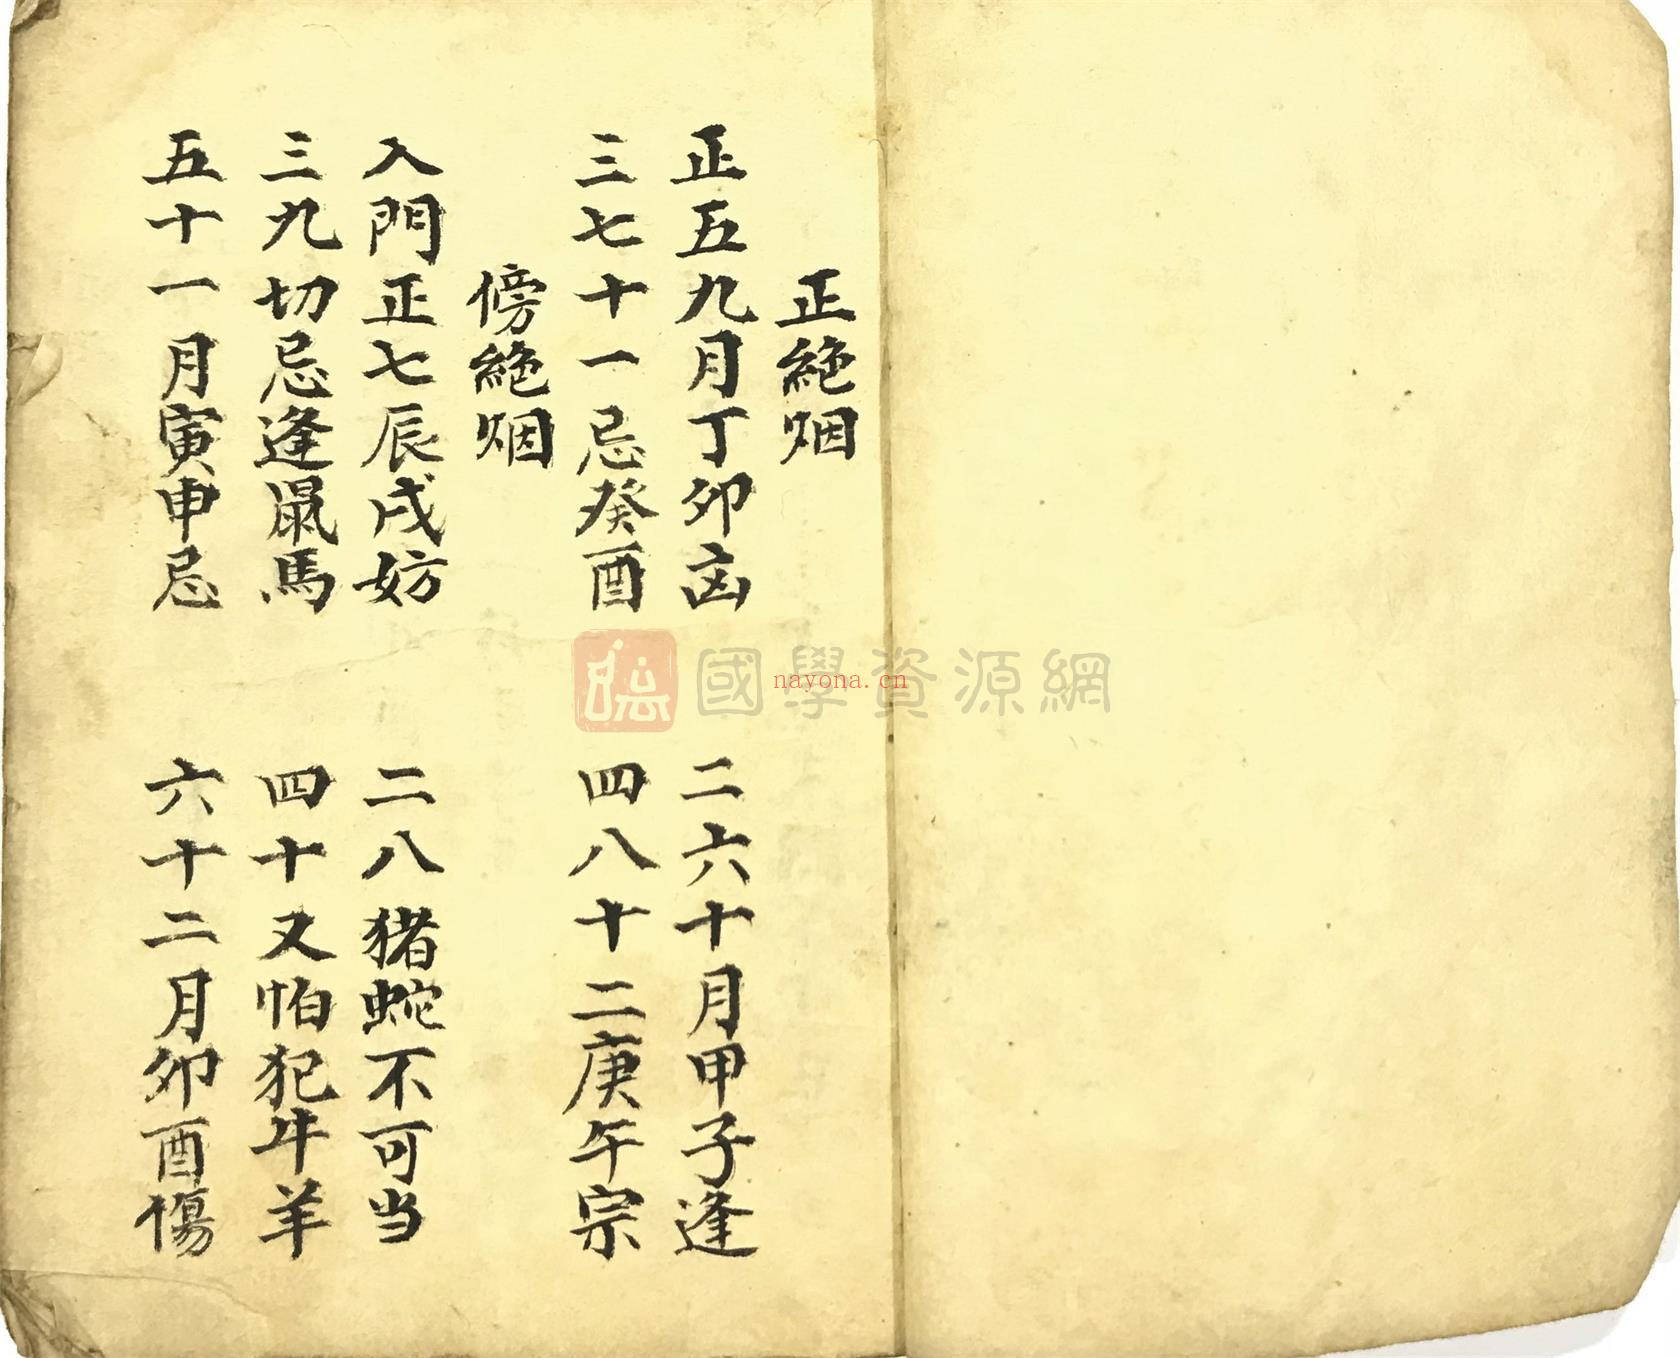 正絶烟
正五九月丁卯凶　二六十月甲子逢
三七十一忌癸酉　四八十二庚午宗
傍絶烟
入門正七辰戌妨　二八猪蛇不可当
三九切忌逢鼠馬　四十又怕犯牛羊
五十一月寅申忌　六十二月卯酉傷
國學資源網
nayona.cn